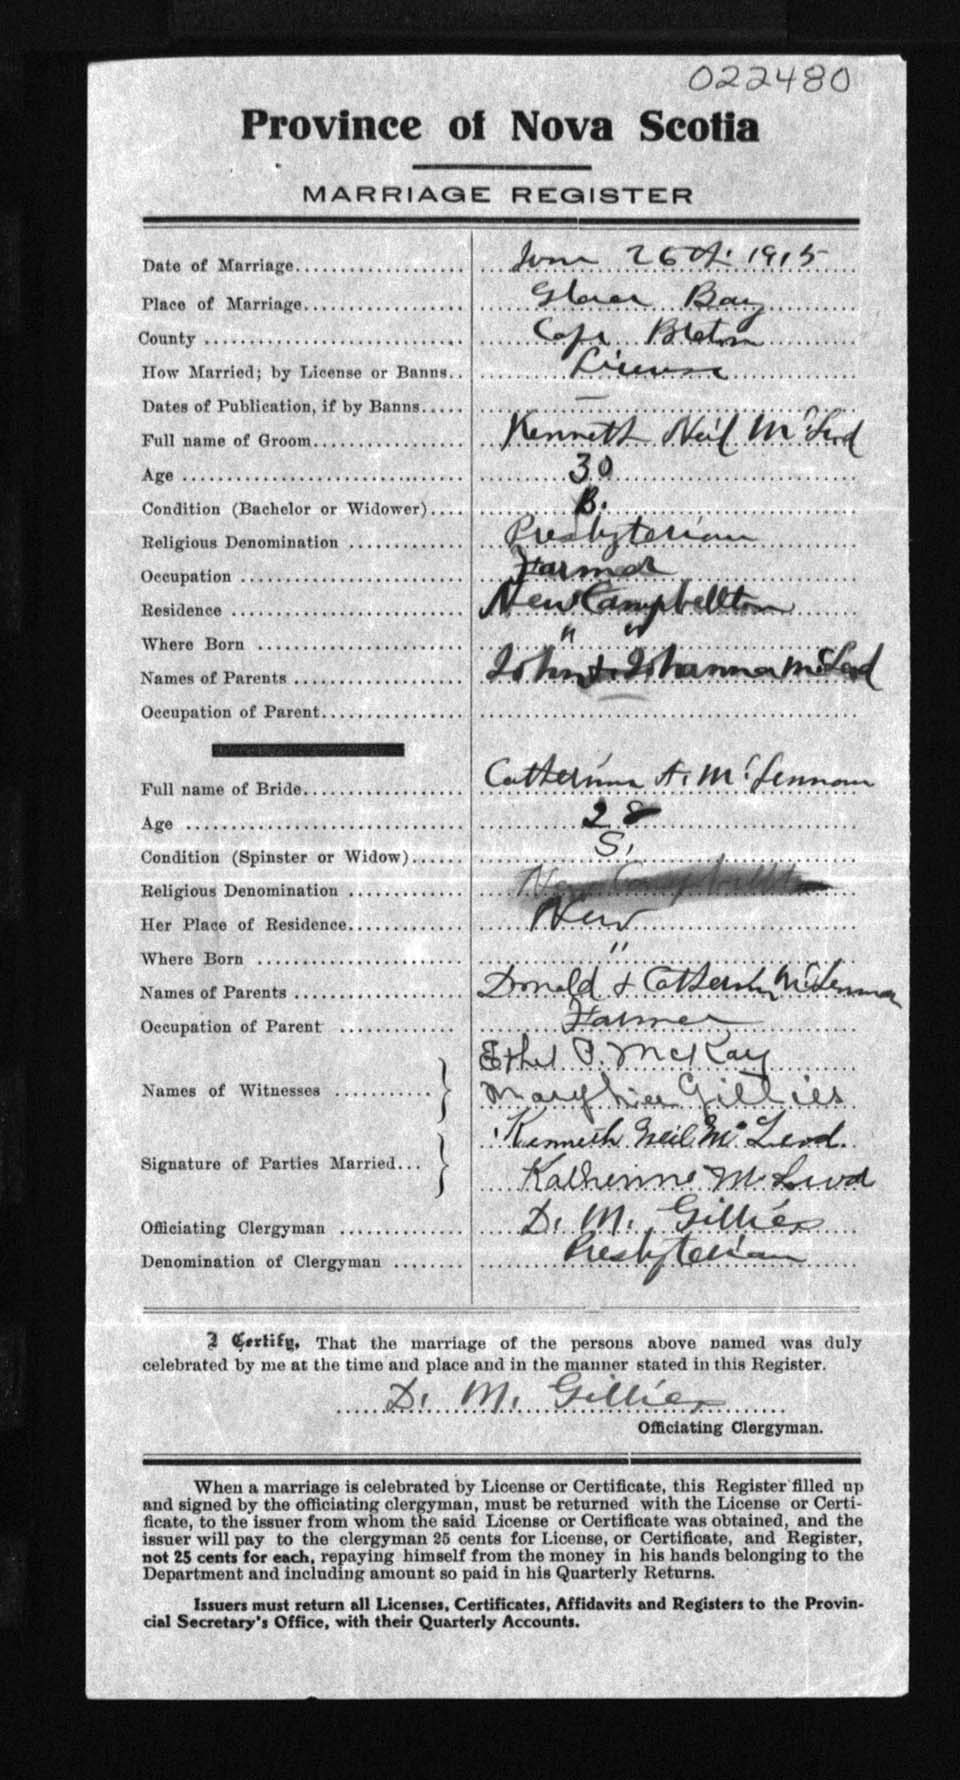 022480
Province of Nova Scotia
MARRIAGE REGISTER
Date of Marriage.................... June 26th 1915
Place of Marriage.................... Glace Bay
County .................... Cape Breton
How Married; by License or Banns.. License
Dates of Publication, if by Banns..... —
Full name of Groom.................... Kenneth Neil McLeod
Age .................... 30
Condition (Bachelor or Widower).... B.
Religious Denomination .................... Presbyterian
Occupation .................... Farmer
Residence .................... New Campbellton
Where Born .................... " "
Names of Parents .................... John & Johanna McLeod
Occupation of Parent....................
Full name of Bride.................... Catherine A. McLennan
Age .................... 28
Condition (Spinster or Widow)...... S.
Religious Denomination .................... New Campbellton
Her Place of Residence.................... New
Where Born .................... "
Names of Parents .................... Donald & Catherine McLennan
Occupation of Parent .................... Farmer
Names of Witnesses .................... Ethel P. McKay
Mary Gillies
Signature of Parties Married... Kenneth Neil McLeod
Katherine McLeod
Officiating Clergyman .................... D. M. Gillies
Denomination of Clergyman ........ Presbyterian
I Certify, That the marriage of the persons above named was duly
celebrated by me at the time and place and in the manner stated in this Register.
D. M. Gillies
Officiating Clergyman.
When a marriage is celebrated by License or Certificate, this Register filled up
and signed by the officiating clergyman, must be returned with the License or Certi-
ficate, to the issuer from whom the said License or Certificate was obtained, and the
issuer will pay to the clergyman 25 cents for License, or Certificate, and Register,
not 25 cents for each, repaying himself from the money in his hands belonging to the
Department and including amount so paid in his Quarterly Returns.
Issuers must return all Licenses, Certificates, Affidavits and Registers to the Provin-
cial Secretary's Office, with their Quarterly Accounts.